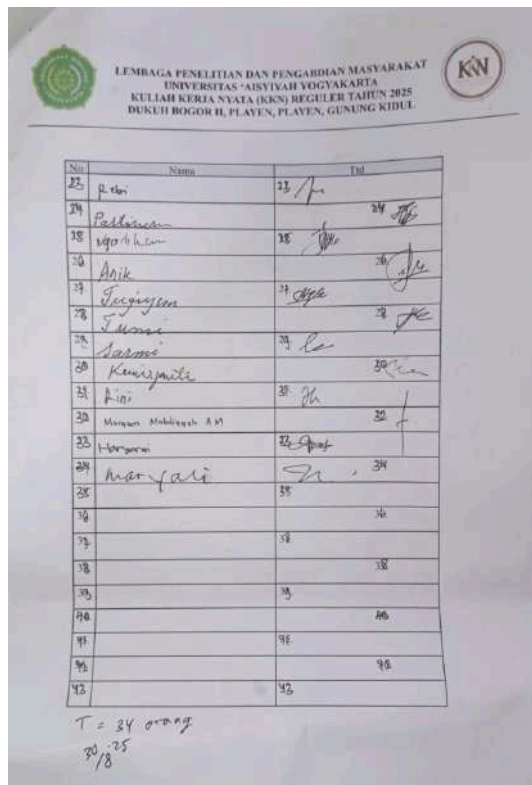 LEMBAGA PENELITIAN DAN PENGABDIAN MASYARAKAT
UNIVERSITAS 'AISYIYAH YOGYAKARTA
KULIAH KERJA NYATA (KKN) REGULER TAHUN 2025
DUKUH BOGOR II, PLAYEN, PLAYEN, GUNUNG KIDUL
KKN
No Nama Ttd
23 23
24 24
25 25
26 Anik 26
27 Tugiyem 27
28 Tumi 28
29 Sarmi 29
30 30
31 Aini
32 A M 32
33 33
34 Maryati 34
35 35
36 36
37
38 38
39 39
40 40
41 41
42 42
43 43
T = 34 orang
30/8 25